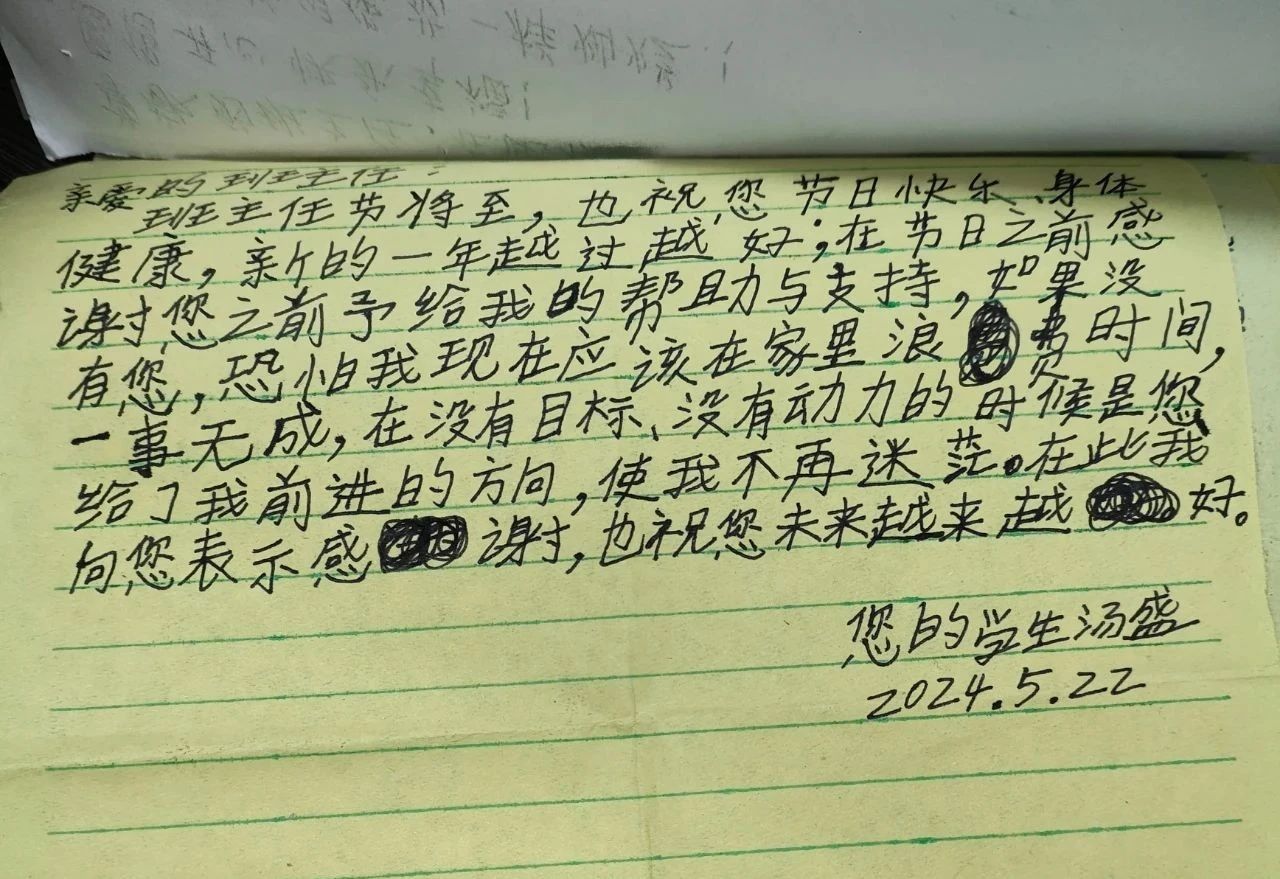 亲爱的班主任：
班主任节将至，也祝您节日快乐、身体
健康，亲个的一年越过越好；在节日之前感
谢您之前予给我的帮助与支持，如果没
有您，恐怕我现在应该在家里浪费时间，
一事无成，在没有目标、没有动力的时候是您
给了我前进的方向，使我不再迷茫。在此我
向您表示感谢，也祝您未来越来越好。
您的学生汤盛
2024.5.22